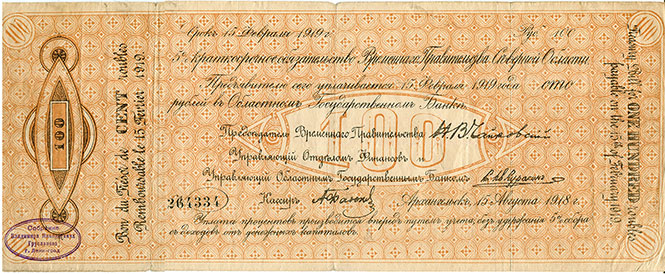 Срокъ 15 Февраля 1919 г.
Руб. 100
5% Краткосрочное обязательство Временнаго Правительства Северной Области
Предъявителю сего уплачивается 15 Февраля 1919 года сто
рублей в Областномъ Государственномъ Банкѣ.
Председатель Временнаго Правительства
Управляющий Отделомъ Финансов и
Управляющий Областнымъ Государственнымъ Банкомъ
264334
Кассиръ
Архангельскъ, 15 Августа 1918 г.
Уплата процентовъ производится впередъ путем учета, без удержания 5% сбора
с доходовъ отъ денежныхъ капиталовъ.
100
100
Bon du Trésor de CENT roubles
Remboursable le 15 Février 1919.
Treasury Bill for ONE HUNDRED roubles
payable on the 15th of February 1919
Собрание
Владимира
г. Ленинград
100
100
100
100